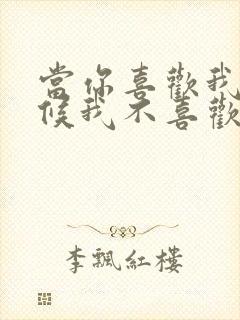 當你喜歡我
候我不喜歡
李飄紅樓